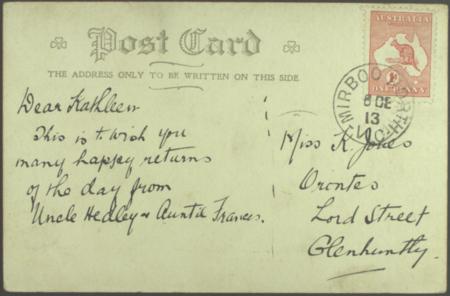 Post Card
THE ADDRESS ONLY TO BE WRITTEN ON THIS SIDE
AUSTRALIA
ONE PENNY
MIRBOO NORTH
8 DE
13
VIC
Dear Kathleen
This is to wish you
many happy returns
of the day from
Uncle Hedley & Auntie Frances.
Miss K. Jones
Orontes
Lord Street
Glenhuntly.